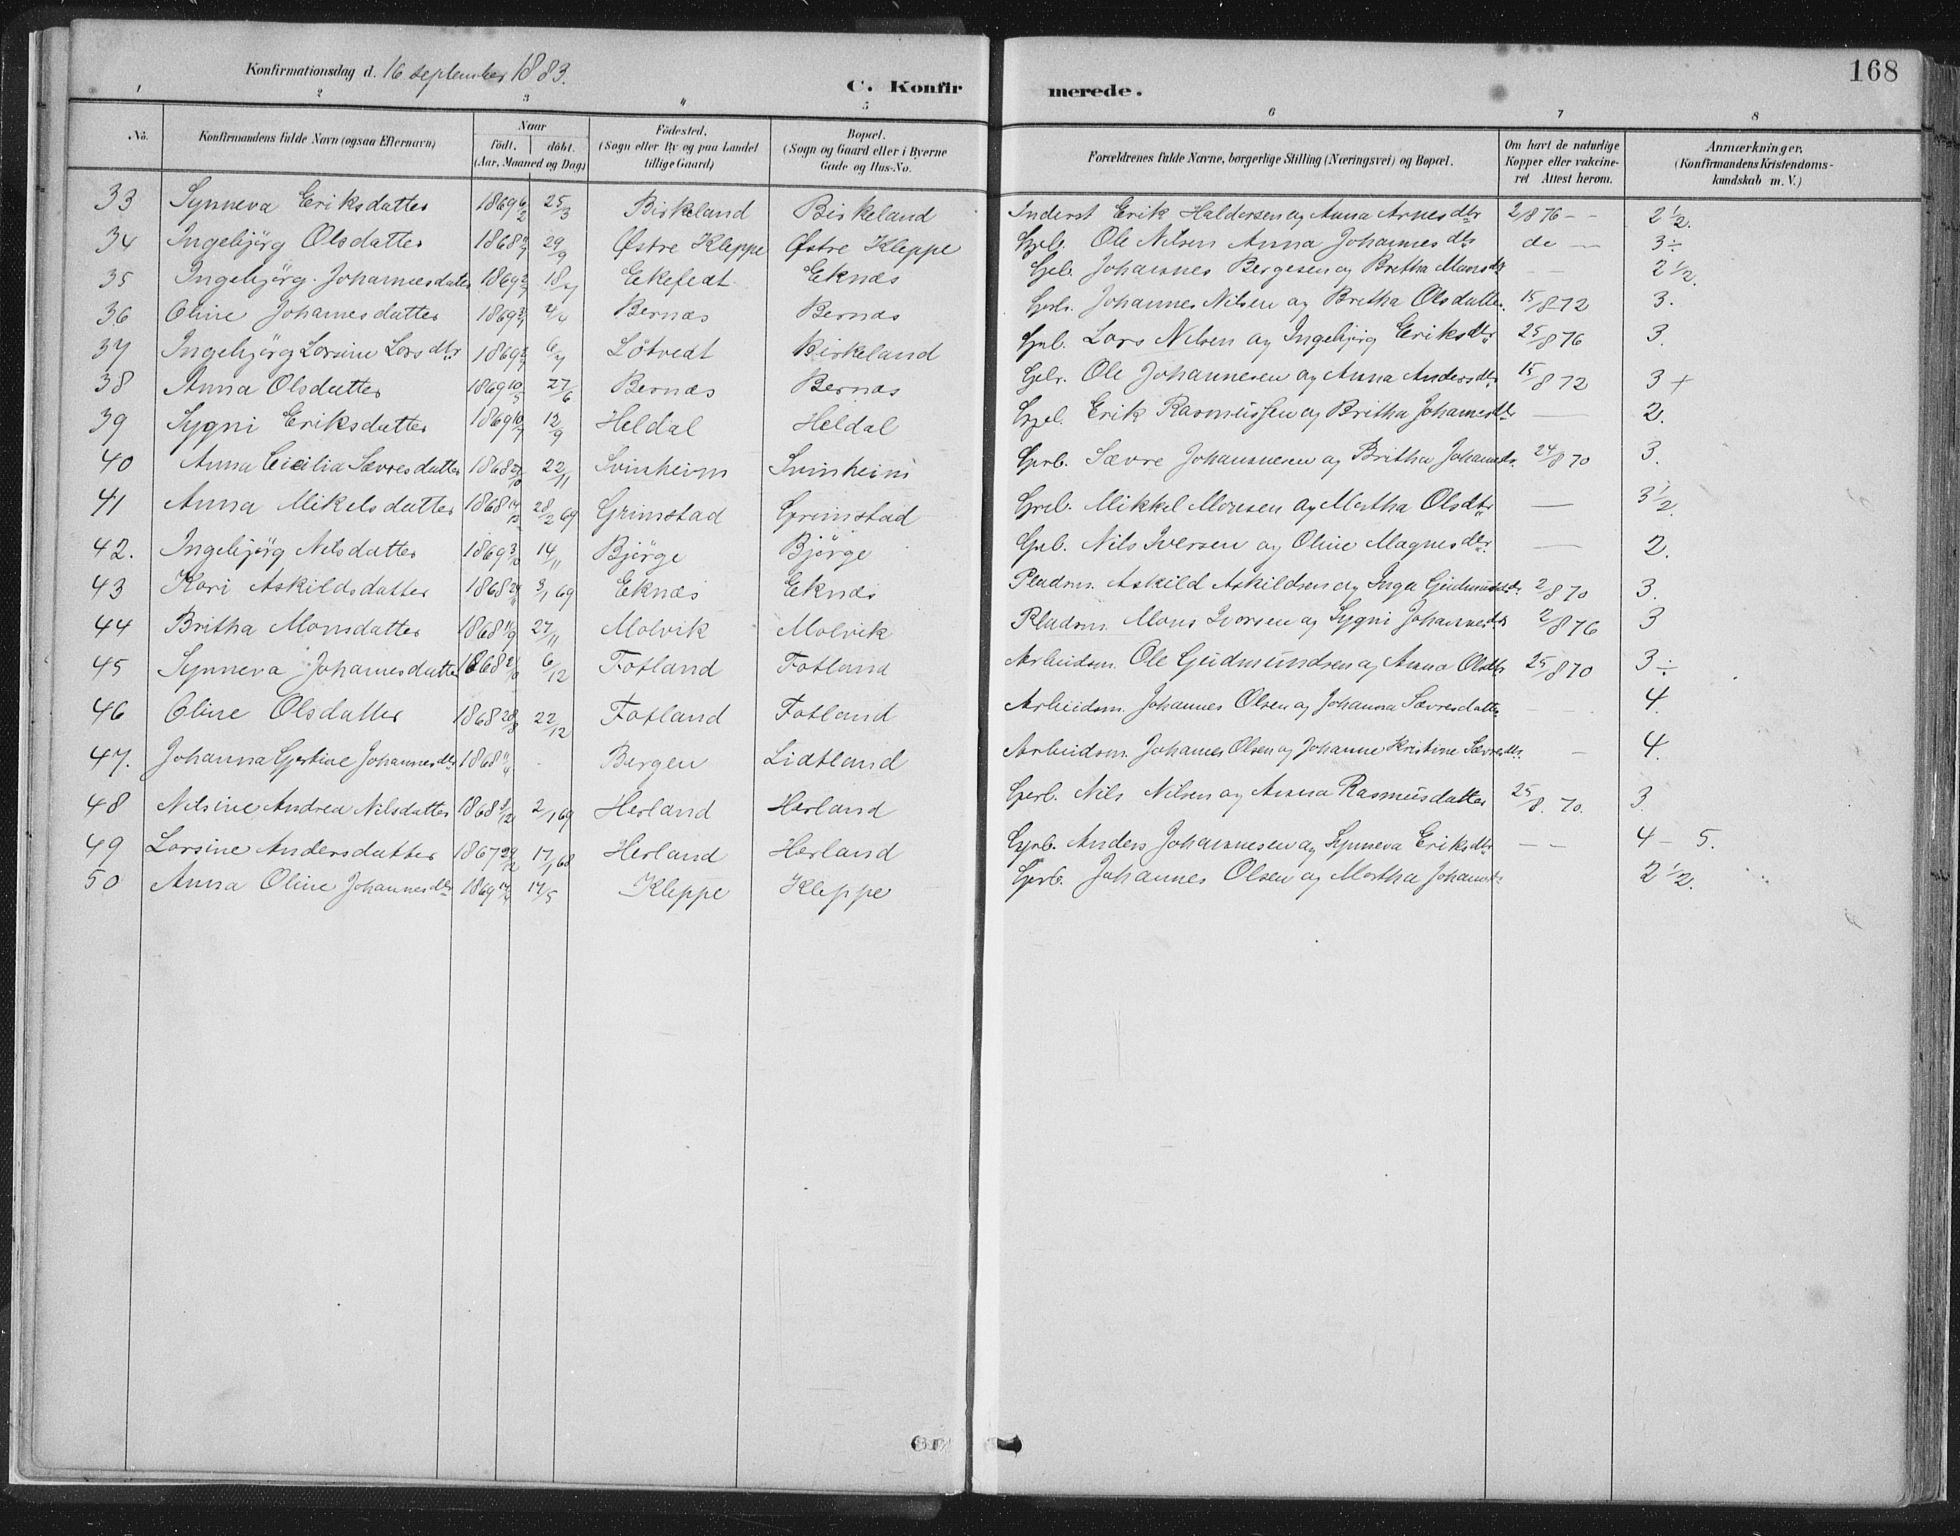 168
Konfirmationsdag d. 16 september 1883.
C. Konfirmerede.
1 2 3 4 5 6 7 8
No. Konfirmandens fulde Navn (ogsaa Efternavn) Naar Födt. döbt. (Aar, Maaned og Dag) Födested. (Sogn eller By og paa Landet tillige Gaard) Bopæl. (Sogn og Gaard eller i Byerne Gade og Hus-No. Forældrenes fulde Navne, borgerlige Stilling (Næringsvei) og Bopæl. Om havt de naturlige Kopper eller vakcineret Attest herom. Anmærkninger, (Konfirmandens Kristendomskundskab m. V.)
33 Synneva Eriksdatter 1869 6/2 25/3 Birkeland Birkeland Inderst Erik Haldorsen og Anna Arnesdtr 2/8 76 - - 2 1/2.
34 Ingebjörg Olsdatter 1868 29/9 Østre Kleppe Østre Kleppe Gbr. Ole Nilsen Anna Johannesdtr do — 3 ÷
35 Ingebjörg Johannesdatter 1869 18/4 Ekefedt Eknæs Gbr. Johannes Bergesen og Bretha Monsdtr - - 2 1/2.
36 Oline Johanesdatter 1869 4/4 Bernæs Bernæs Gbr. Johannes Nilsen og Britha Olsdatter 15/8 72 3.
37 Ingebjörg Larsine Larsdtr 1869 6/4 Lötvedt Birkeland Gbr. Lars Nilsen og Ingebjörg Eriksdtr 25/8 76 3.
38 Anna Olsdatter 1869 10/5 27/6 Bernæs Bernæs Gbr. Ole Johannesen og Anna Andersdtr 15/8 72 3 +
39 Sygni Eriksdatter 1869 10/7 12/9 Heldal Heldal Gbr. Erik Rasmussen og Britha Johanesdtr — 2.
40 Anna Cicilia Sævresdatter 1868 22/11 Svinheim Svinheim Gbr. Sævre Johannesen og Britha Johanesdtr. 24/8 70 3.
41 Anna Mikelsdatter 1868 28/2 69 Grimstad Grimstad Gbr. Mikkel Monsen og Martha Olsdtr — 3 1/2.
42. Ingebjörg Nilsdatter 1869 3/10 14/11 Bjørge Bjørge Gbr. Nils Iversen og Oline Magnesdtr. — 2.
43 Kari Askildsdatter 1868 3/1 69 Eknæs Eknæs Pladsm. Askild Askildsen og Inga Gudmundsdtr 2/8 70 3.
44 Britha Monsdatter 1868 11/9 27/11 Molvik Molvik Pladsm. Mons Iversen og Sygni Johannesdtr 2/8 76 3
45 Synneva Johanesdatter 1868 6/12 Fotland Fotland Arbeidsm. Ole Gudmundsen og Anna Olsdtr 25/8 70 3 ÷
46 Oline Olsdatter 1868 22/12 Fotland Fotland Arbeidsm. Johannes Olsen og Johanna Sævresdatter - - 4.
47. Johanna Gjertine Johannesdtr 1868 - Bergen Lidtland Arbeidsm. Johanes Olsen og Johanne Kristine Sævresdtr. - 4.
48 Nilsine Andrea Nilsdatter 1868 2/1 69 Herland Herland Gbr. Nils Nilsen og Anna Rasmusdatter 25/8. 70. 3.
49 Larsine Andersdatter 1867 29/12 17/1 68 Herland Herland Gbr. Anders Johannesen og Synneva Eriksdtr - - 4 - 5.
50 Anna Oline Johannesdtr 1869 17/5 Kleppe Kleppe Gbr. Johannes Olsen og Martha Johanesdtr 2 1/2.